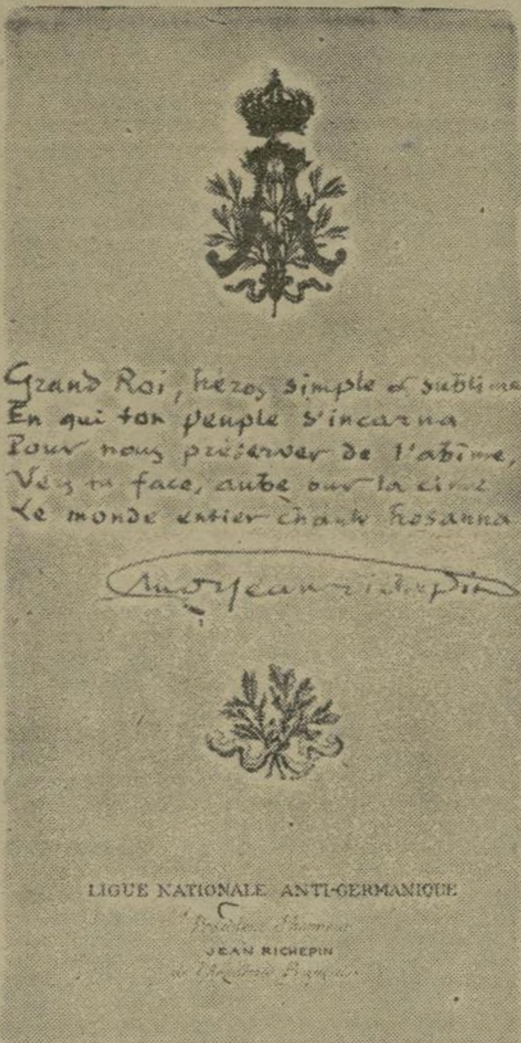 Grand Roi, héros simple & sublime
En qui ton peuple s'incarna
Pour nous préserver de l'abîme,
Vers ta face, aube sur la cime
Le monde entier chante hosanna
Jean Richepin
LIGUE NATIONALE ANTI-GERMANIQUE
Président d'honneur
JEAN RICHEPIN
de l'Académie Française